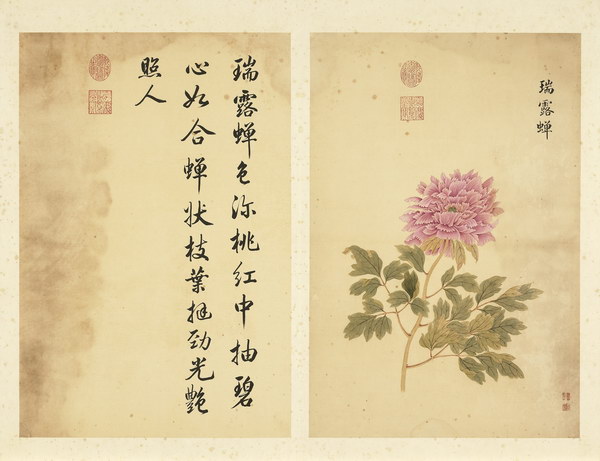 瑞露蟬
瑞露蟬色深桃紅中抽碧
心如合蟬狀枝葉挺勁光艷
照人